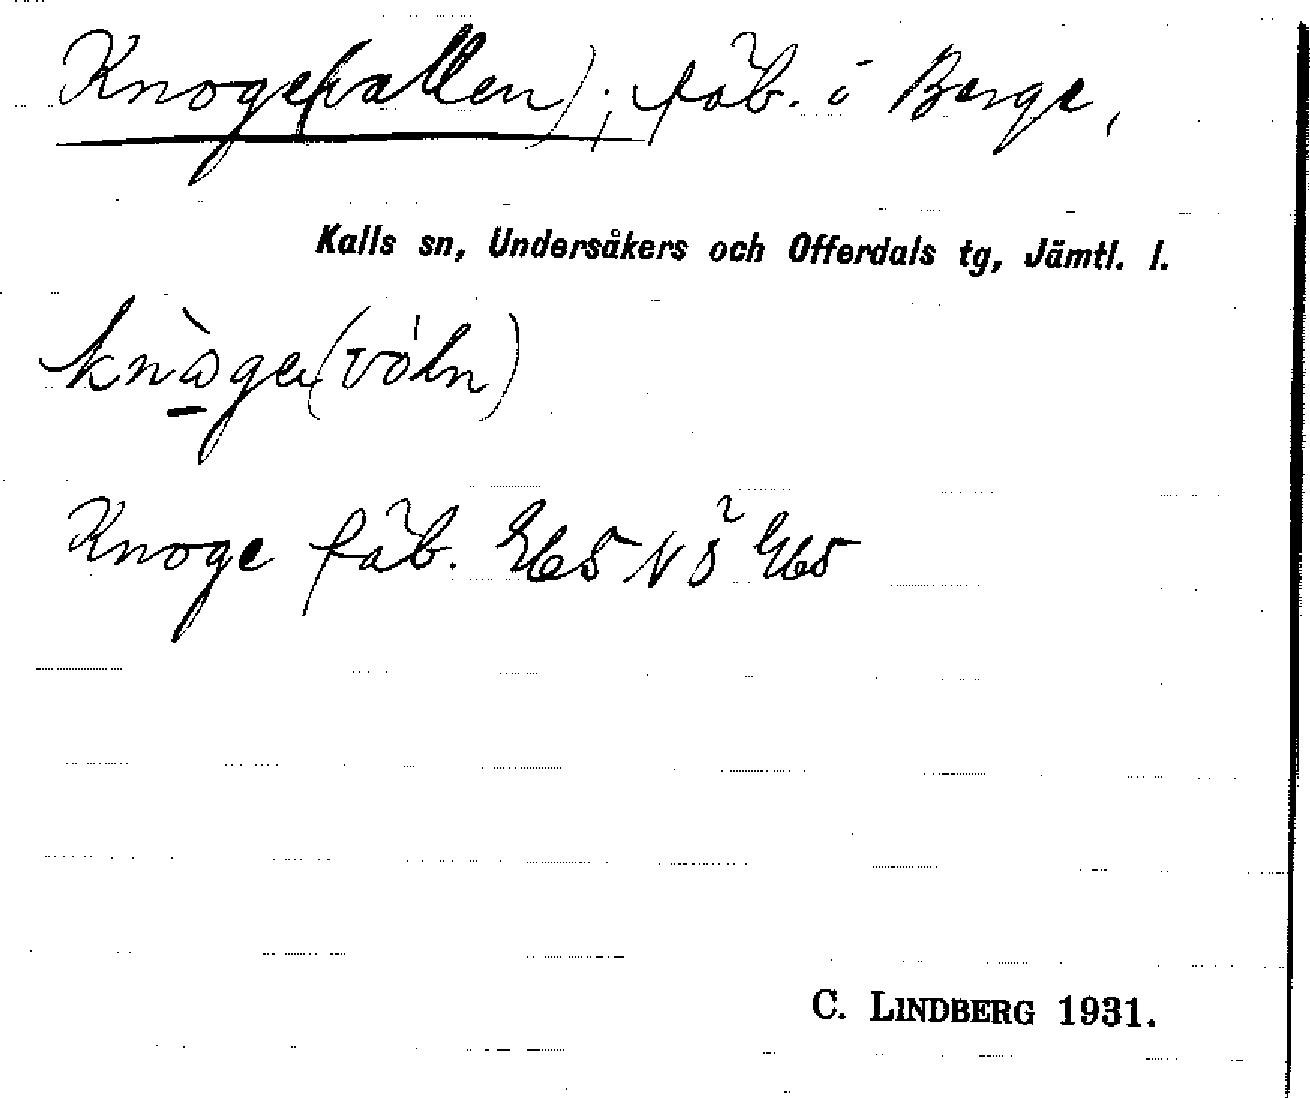 Knoge(vallen); fäb. i Berge,
Kalls sn, Undersåkers och Offerdals tg, Jämtl. l.
knòge(vóln)
Knoge fäb.
C. LINDBERG 1931.